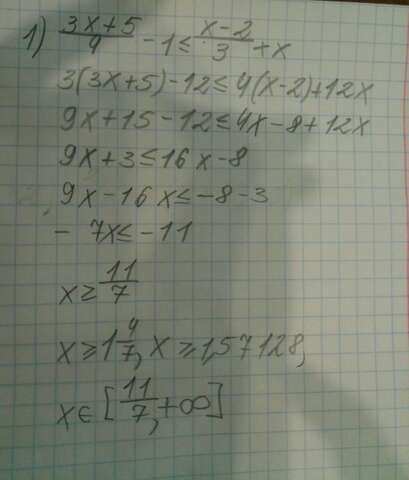 1) (3x+5)/4 - 1 ≤ (x-2)/3 + x
3(3x+5)-12 ≤ 4(x-2)+12x
9x+15-12 ≤ 4x-8+12x
9x+3 ≤ 16x-8
9x-16x ≤ -8-3
- 7x ≤ -11
x ≥ 11/7
x ≥ 1 4/7, x ≥ 1,57128,
x ∈ [11/7, +∞]